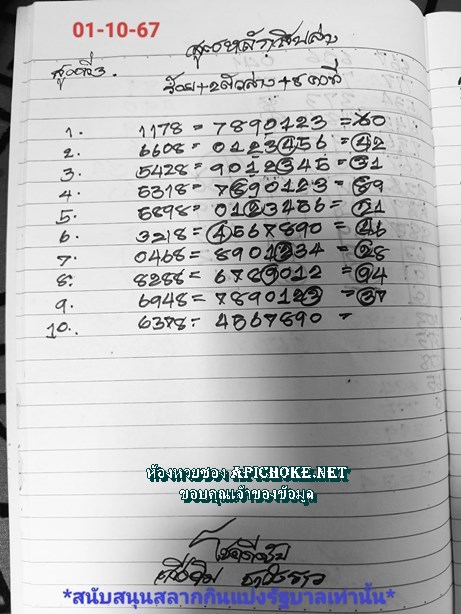 01-10-67
สูตรหลักสิบล่าง
สูตรที่ 3.
ร้อย+2ตัวล่าง+8คงที่
1. 1178 = 7890123 = 60
2. 6608 = 0123456 = 42
3. 5428 = 9012345 = 31
4. 5318 = 7890123 = 89
5. 5898 = 0123456 = 21
6. 3218 = 4567890 = 46
7. 0468 = 8901234 = 28
8. 8288 = 6789012 = 94
9. 6948 = 7890123 = 37
10. 6378 = 4567890 =
ห้องหวยซอง APICHOKE.NET
ขอบคุณเจ้าของข้อมูล
โชคดีครับ
*สนับสนุนสลากกินแบ่งรัฐบาลเท่านั้น*